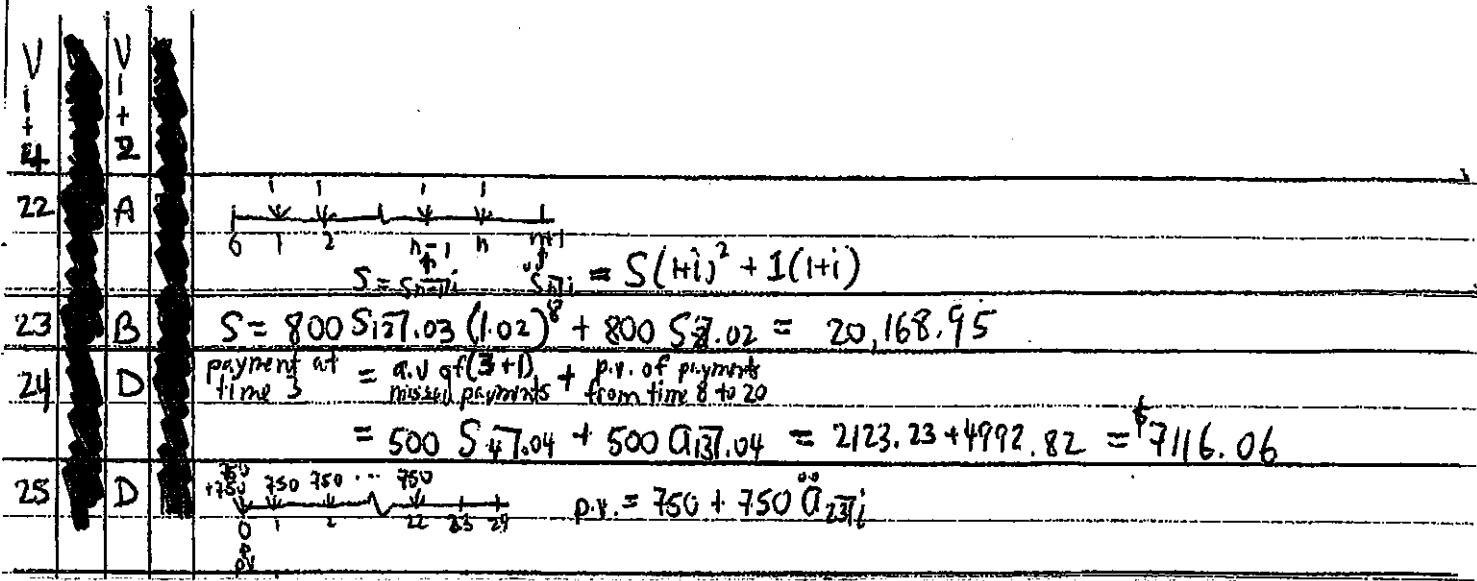 V 1+4 V 1+2
22 A 1 1 1 1
0 1 2 n-1 n n+1
S = s_{n-1}|i s̈_{n}|i = S(1+i)² + 1(1+i)
23 B S = 800 S_{12}|.03 (1.02)⁸ + 800 S_{8}|.02 = 20,168.95
24 D payment at time 3 = a.v of (3+1) missed payments + p.v. of payments from time 8 to 20
= 500 S_{4}|.04 + 500 a_{13}|.04 = 2123.23 + 4992.82 = $7116.06
25 D 750 +750 750 750 ... 750
0 1 2 22 23 24 p.v. = 750 + 750 ä_{23}|i
pv